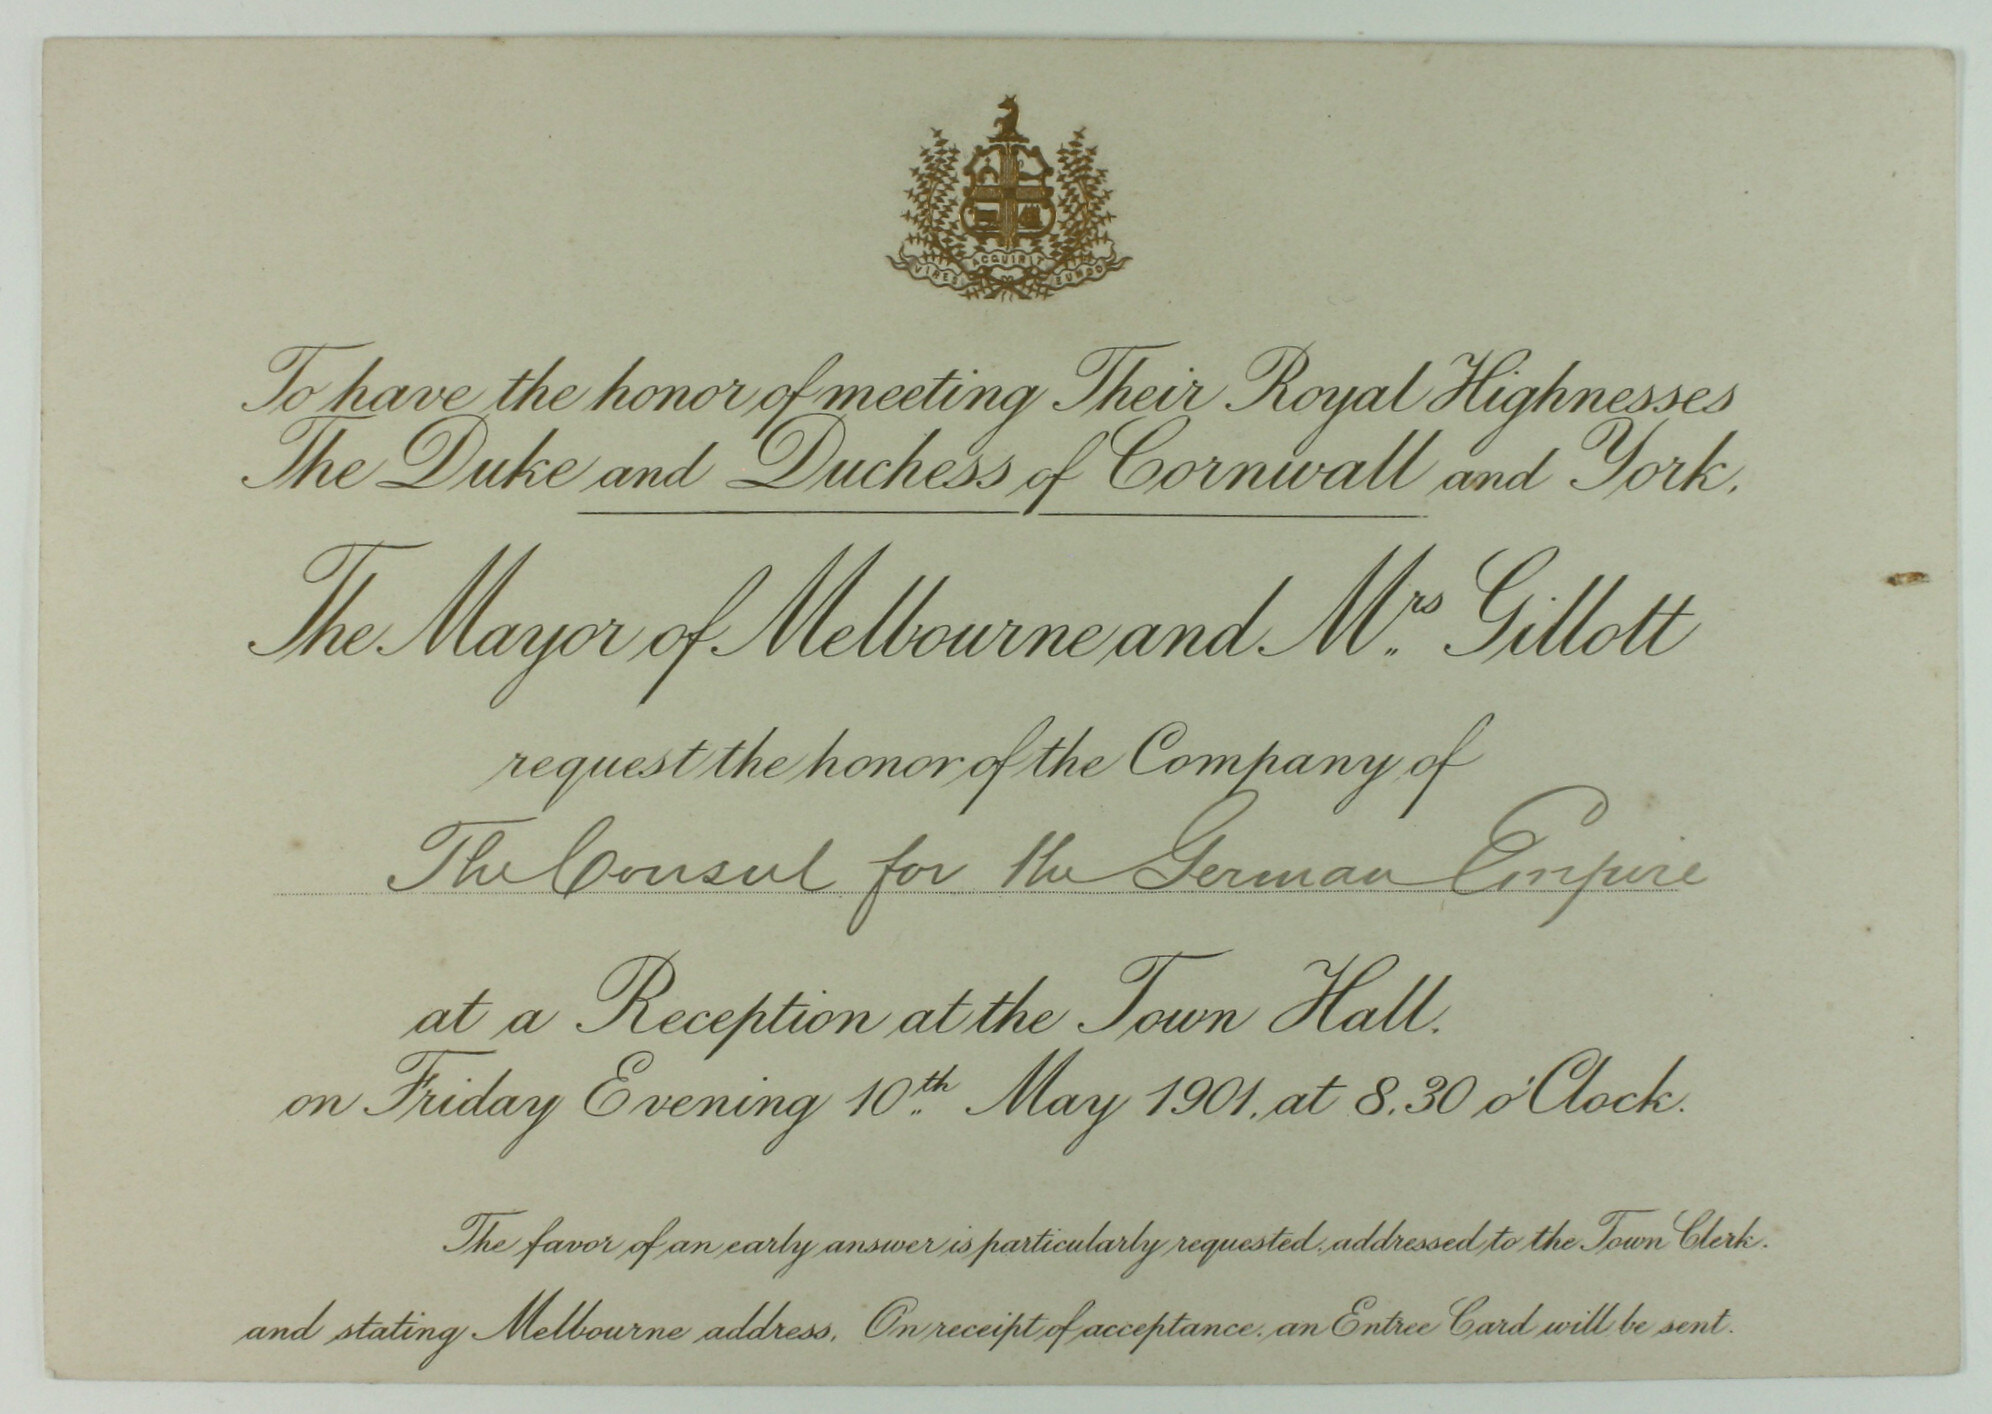 VIRES ACQUIRIT EUNDO
To have the honor of meeting Their Royal Highnesses
The Duke and Duchess of Cornwall and York.
The Mayor of Melbourne and Mrs Gillott
request the honor of the Company of
The Consul for the German Empire
at a Reception at the Town Hall.
on Friday Evening 10th May 1901. at 8.30 o'Clock.
The favor of an early answer is particularly requested. addressed to the Town Clerk.
and stating Melbourne address. On receipt of acceptance. an Entree Card will be sent.